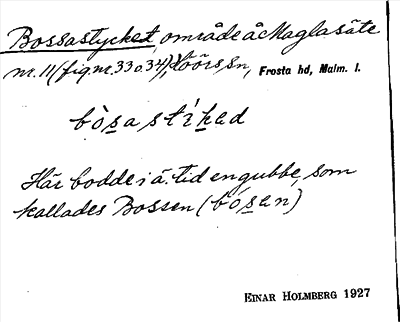 Bossastycket, område å Maglasäte
nr. 11 (fig. nr. 33 o 34), Höörs sn, Frosta hd, Malm. l.
bòsastíked
Här bodde i ä. tid en gubbe, som
kallades Bossen (bósen)
EINAR HOLMBERG 1927